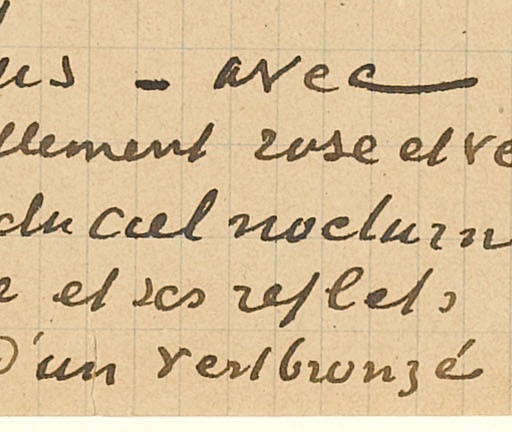 us - avec
llement rose et ve
du ciel nocturn
e et ses reflets
D'un vert bronzé